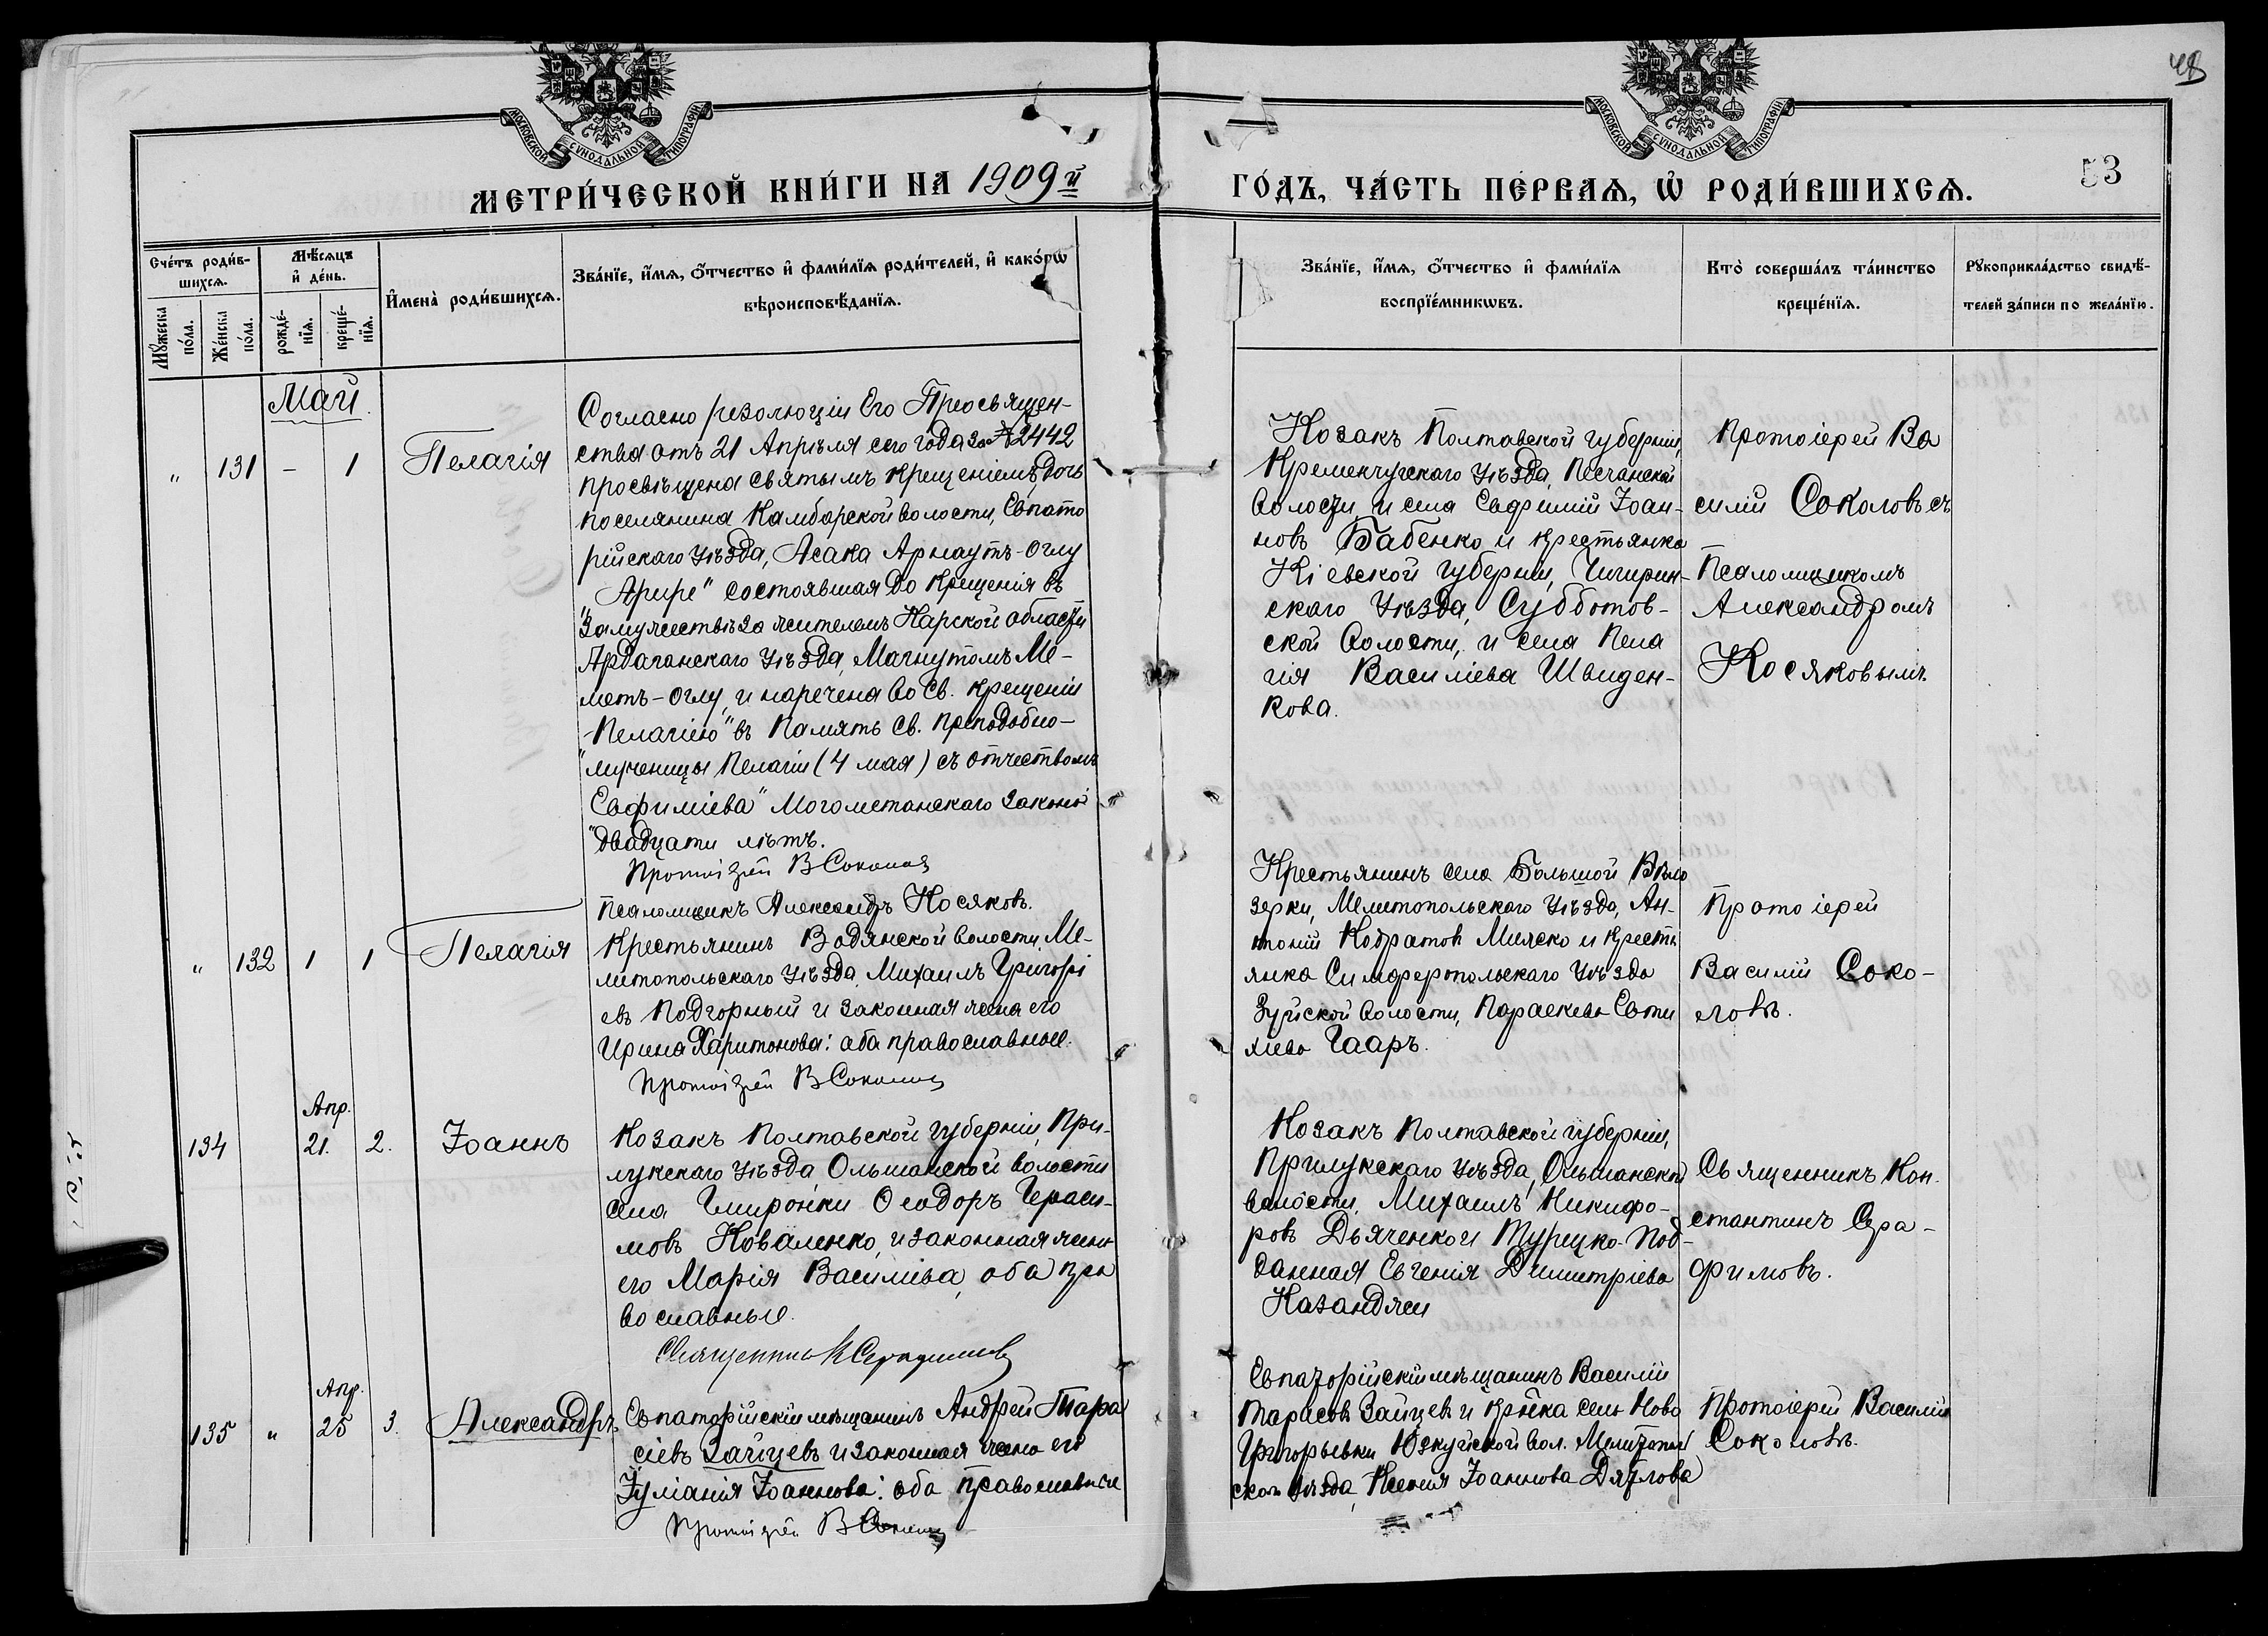 48
МОСКОВСКОЙ СѴНОДАЛЬНОЙ ТИПОГРАФІИ
МОСКОВСКОЙ СѴНОДАЛЬНОЙ ТИПОГРАФІИ
МЕТРИ́ЧЕСКОЙ КНИ́ГИ НА 1909й
ГО́ДЪ, ЧА́СТЬ ПЕ́РВАѦ, Ѡ҆ РОДИ́ВШИХСѦ.
53
Сче́тъ роди́в-
шихсѧ.
Мѣ́сѧцъ
и҆ де́нь.
Мꙋ́жеска
по́ла.
Же́нска
по́ла.
рожде́-
нїѧ.
креще́-
нїѧ.
И҆мена̀ роди́вшихсѧ.
Зва́нїе, и҆́мѧ, ѻ҆́тчество и҆ фами́лїѧ роди́телей, и҆ како́гѡ
вѣроисповѣ́данїѧ.
Зва́нїе, и҆́мѧ, ѻ҆́тчество и҆ фами́лїѧ
воспрїе́мникѡвъ.
Кто̀ соверша́лъ та́инство
креще́нїѧ.
Рꙋкоприкла́дство свидѣ́-
телей за́писи по жела́нїю.
Май.
" 131 – 1 Пелагія
Согласно резолюціи Его Преосвящен-
ства отъ 21 Апрѣля сего года за № 2442
просвѣщена святымъ крещеніемъ дочь
поселянина Камбарской волости, Евпато
рійскаго уѣзда, Асана Арнаутъ-Оглу
"Арире" состоявшая до крещенія въ
замужествѣ за жителемъ Карской области
Ардаганскаго уѣзда, Магнутомъ Ме-
метъ-Оглу, и наречена во Св. крещеніи
"Пелагіею" въ память Св. преподобно-
мученицы Пелагіи (4 мая) съ отчествомъ
"Евфиміева" Могометанскаго закона
двадцати лѣтъ.
Протоіерей В Соколовъ
Псаломщикъ Александръ Косяковъ.
Козакъ Полтавской губерніи,
Кременчугскаго уѣзда, Песчанской
волости, и села Евфимій Іоан-
новъ Бабенко и крестьянка
Кіевской губерніи, Чигирин-
скаго уѣзда, Субботов-
ской волости, и села Пела
гія Василіева Швиден-
кова.
Протоіерей Ва
силій Соколовъ съ
Псаломщикомъ
Александромъ
Косяковымъ.
" 132 1 1 Пелагія
Крестьянинъ Водянской волости Ме-
литопольскаго уѣзда, Михаилъ Григорі
евъ Подгорный и законная жена его
Ирина Харитонова: оба православные.
Протоіерей В Соколовъ
Крестьянинъ села Большой Бѣло
зерки, Мелитопольскаго уѣзда, Ан-
тоній Кодратовъ и кресть
янка Симферопольскаго уѣзда
Зуйской волости, Параскева Евти
хиева Гааръ.
Протоіерей
Василій Соко-
ловъ.
Апр.
134 21. 2. Іоаннъ
Козакъ Полтавской губерніи, При-
лукскаго уѣзда, Ольшанской волости
села Гмиронки Ѳеодоръ Гераси-
мовъ Коваленко, и законная жена
его Марія Василіева, оба пра
вославные.
Священникъ К Серафимовъ
Козакъ Полтавской губерніи,
Прилукскаго уѣзда, Ольшанской
волости, Михаилъ Никифо-
ровъ Дьяченко и Турецко-Под-
данная Евгенія Димитріева
Казанджи
Священникъ Кон-
стантинъ Сера-
фимовъ.
Апр.
135 " 25 3. Александръ
Евпаторійскій мѣщанинъ Андрей Тара
сіевъ Зайцевъ и законная жена его
Іуліанія Іоаннова: оба православные
Протоіерей В Соколовъ
Евпаторійскій мѣщанинъ Василій
Тарасовъ Зайцевъ и кр-нка села Ново
Григорьевки Юзкуйской вол. Мелитополь
скаго уѣзда, Ксенія Іоаннова Дятлова
Протоіерей Василій
Соколовъ.